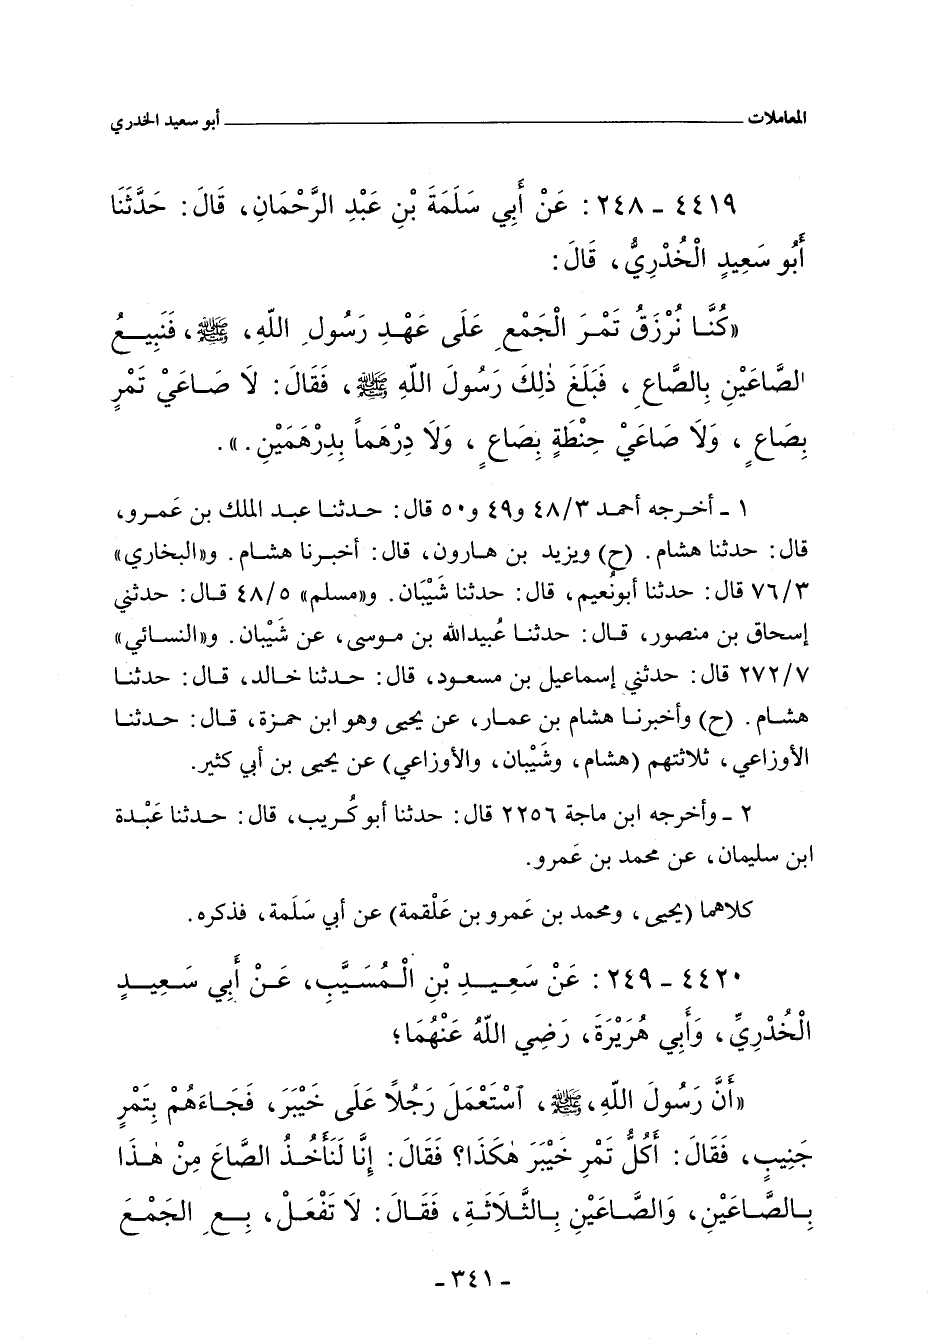 المعاملات ــــــــــــــــــــ أبو سعيد الخدري
٤٤١٩ - ٢٤٨ : عَنْ أَبِي سَلَمَةَ بْنِ عَبْدِ الرَّحْمَانِ، قَالَ : حَدَّثَنَا
أَبُو سَعِيدٍ الْخُدْرِيُّ، قَالَ :
«كُنَّا نُرْزَقُ تَمْرَ الْجَمْعِ عَلَى عَهْدِ رَسُولِ اللّهِ، ﷺ، فَنَبِيعُ
الصَّاعَيْنِ بِالصَّاعِ ، فَبَلَغَ ذٰلِكَ رَسُولَ اللّهِ ﷺ، فَقَالَ : لَا صَاعَيْ تَمْرٍ
بِصَاعٍ ، وَلَا صَاعَيْ حِنْطَةٍ بِصَاعٍ ، وَلَا دِرْهَماً بِدِرْهَمَيْنِ . » .
١ - أخرجه أحمد ٤٨/٣ و٤٩ و٥٠ قال : حدثنا عبد الملك بن عَمرو،
قال : حدثنا هشام . (ح) ويزيد بن هارون، قال : أخبرنا هشام . و«البخاري»
٧٦/٣ قال : حدثنا أبونُعيم، قال : حدثنا شَيْبَان . و«مسلم» ٤٨/٥ قال : حدثني
إسحاق بن منصور، قال : حدثنا عُبيدالله بن موسى، عن شَيْبان . و«النسائي»
٢٧٢/٧ قال : حدثني إسماعيل بن مسعود، قال : حدثنا خالد، قال : حدثنا
هشام . (ح) وأخبرنا هشام بن عمار، عن يحيى وهو ابن حمزة، قال : حدثنا
الأوزاعي، ثلاثتهم (هشام، وشَيْبان، والأوزاعي) عن يحيى بن أبي كثير.
٢ - وأخرجه ابن ماجة ٢٢٥٦ قال : حدثنا أبو كُريب، قال : حدثنا عَبْدة
ابن سليمان، عن محمد بن عَمرو.
كلاهما (يحيى، ومحمد بن عَمرو بن عَلْقمة) عن أبي سَلَمة، فذكره .
٤٤٢٠ - ٢٤٩ : عَنْ سَعِيدِ بْنِ الْمُسَيَّبِ، عَنْ أَبِي سَعِيدٍ
الْخُدْرِيِّ، وَأَبِي هُرَيْرَةَ، رَضِي اللّهُ عَنْهُمَا؛
«أَنَّ رَسُولَ اللّهِ، ﷺ، ٱسْتَعْمَلَ رَجُلاً عَلَى خَيْبَرَ، فَجَاءَهُمْ بِتَمْرٍ
جَنِيبٍ، فَقَالَ : أَكُلُّ تَمْرِ خَيْبَرَ هٰكَذَا؟ فَقَالَ : إِنَّا لَنَأْخُذُ الصَّاعَ مِنْ هٰذَا
بِالصَّاعَيْنِ، وَالصَّاعَيْنِ بِالثَّلَاثَةِ، فَقَالَ : لَا تَفْعَلْ، بِعِ الجَمْعَ
- ٣٤١ -